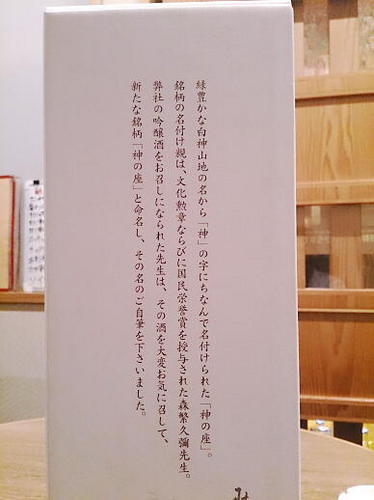 緑豊かな白神山地の名から「神」の字にちなんで名付けられた「神の座」。
銘柄の名付け親は、文化勲章ならびに国民栄誉賞を授与された森繁久彌先生。
弊社の吟醸酒をお召しになられた先生は、その酒を大変お気に召して、
新たな銘柄「神の座」と命名し、その名のご自筆を下さいました。